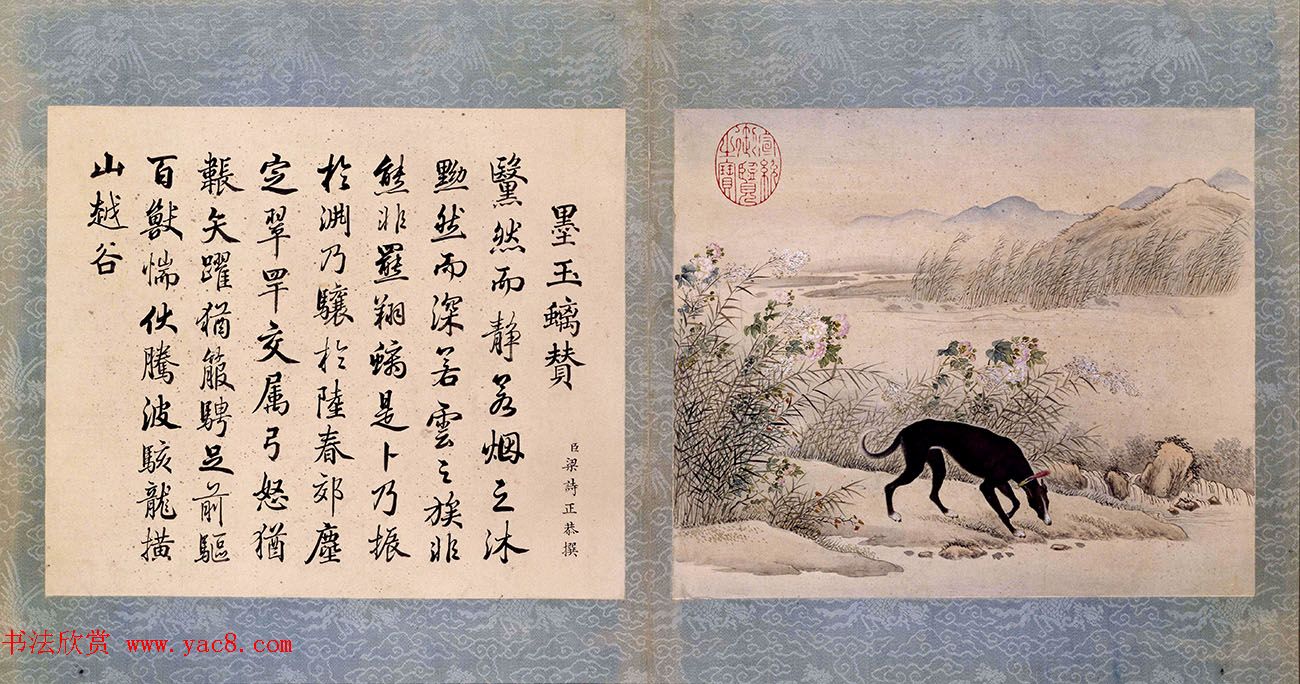 墨玉螭赞
臣梁詩正恭撰
黳然而静若烟之沐
黝然而深若雲之族非
熊非羆翔螭是卜乃振
於淵乃驤於陸春郊塵
定翠罕交属弓怒猶
韔矢躍猶箙騁足前驅
百獸惴伏騰波駭龍横
山越谷
宣統御覽之寶
书法欣赏 www.yac8.com